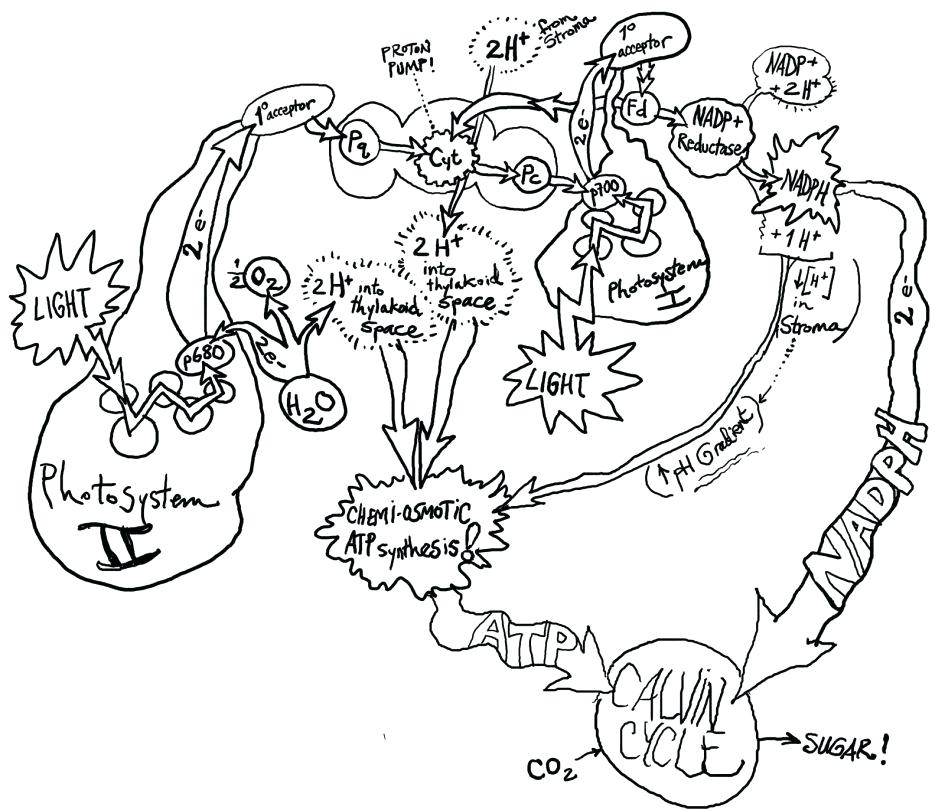 PROTON
PUMP!
2H⁺
from
Stroma
1º
acceptor
1º acceptor
Pq
Cyt
Pc
p700
Fd
NADP+
Reductase
NADP+
+ 2H⁺
NADPH
+ 1H⁺
↓[H⁺]
in
Stroma
2 e-
2 e-
2 e-
2e-
LIGHT
p680
½ O₂
H₂O
2H⁺ into
thylakoid
Space
2 H⁺
into
thylakoid
Space
Photosystem
I
LIGHT
Photosystem
II
↑ pH Gradient
CHEMI-OSMOTIC
ATP synthesis!
NADPH
ATP
CALVIN
CYCLE
CO₂
SUGAR!